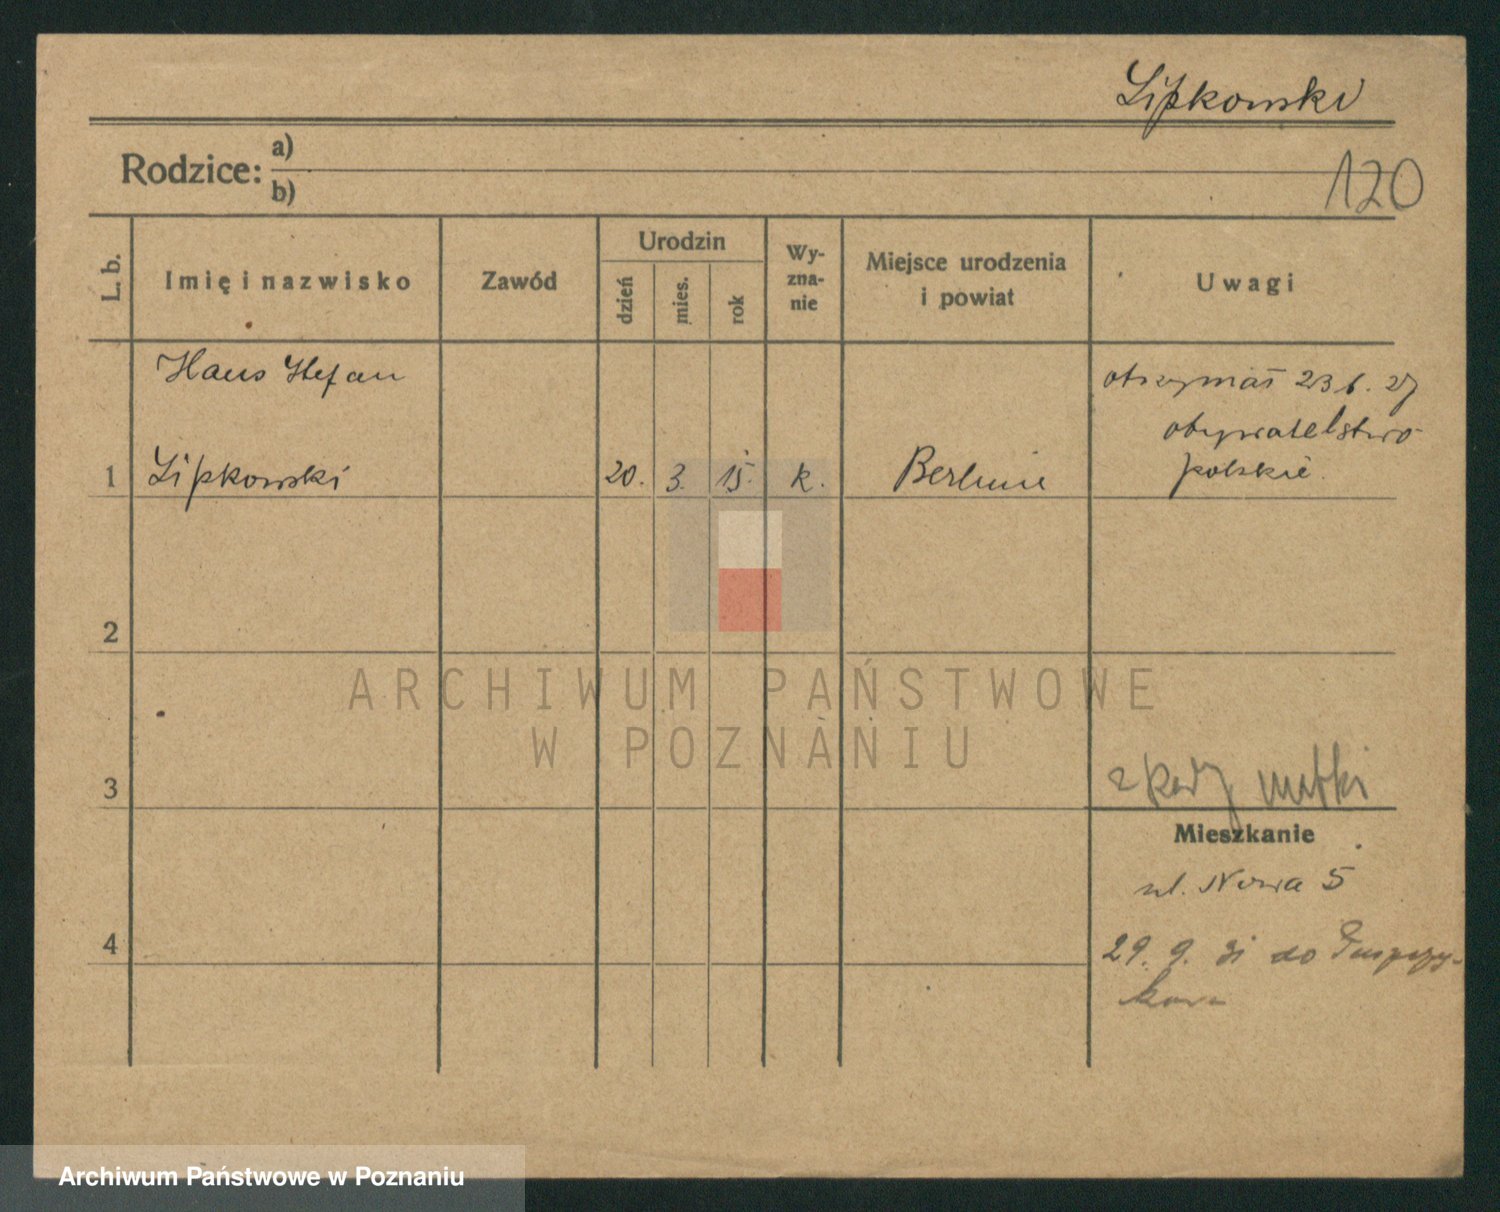 Lipkowski
Rodzice: a)
b)
120
L. b.
Imię i nazwisko
Zawód
Urodzin
dzień
mies.
rok
Wy-
zna-
nie
Miejsce urodzenia
i powiat
Uwagi
Hans Stefan
otrzymał 23 6. 27
obywatelstwo
1 Lipkowski 20. 3. 15. k. Berlinie polskie.
2
ARCHIWUM PAŃSTWOWE
W POZNANIU
3
z karty matki
Mieszkanie
ul. Nowa 5
4
29. 9. 31 do
Archiwum Państwowe w Poznaniu